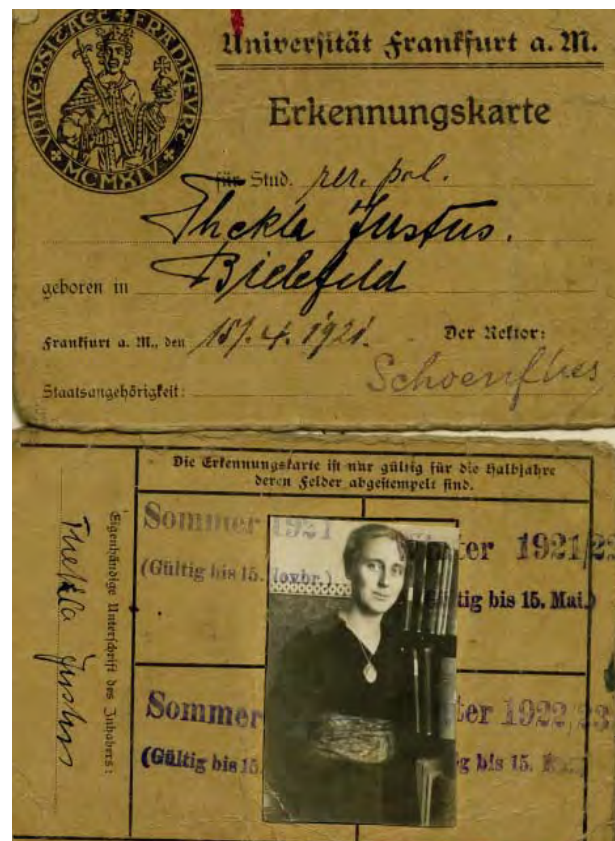 UNIVERSITAET FRANKFURT
MCMXIV
Universität Frankfurt a. M.
Erkennungskarte
für Stud. rer. pol.
Thekla Justus.
geboren in Bielefeld
Frankfurt a. M., den 15/. 4. 1921.
Der Rektor:
Schoenflies
Staatsangehörigkeit:
Die Erkennungskarte ist nur gültig für die Halbjahre
deren Felder abgestempelt sind.
Eigenhändige Unterschrift des Inhabers:
Thekla Justus
Sommer 1921
(Gültig bis 15. Novbr.)
1921/22
bis 15. Mai.)
Sommer
(Gültig bis 15.
1922/23
bis 15.